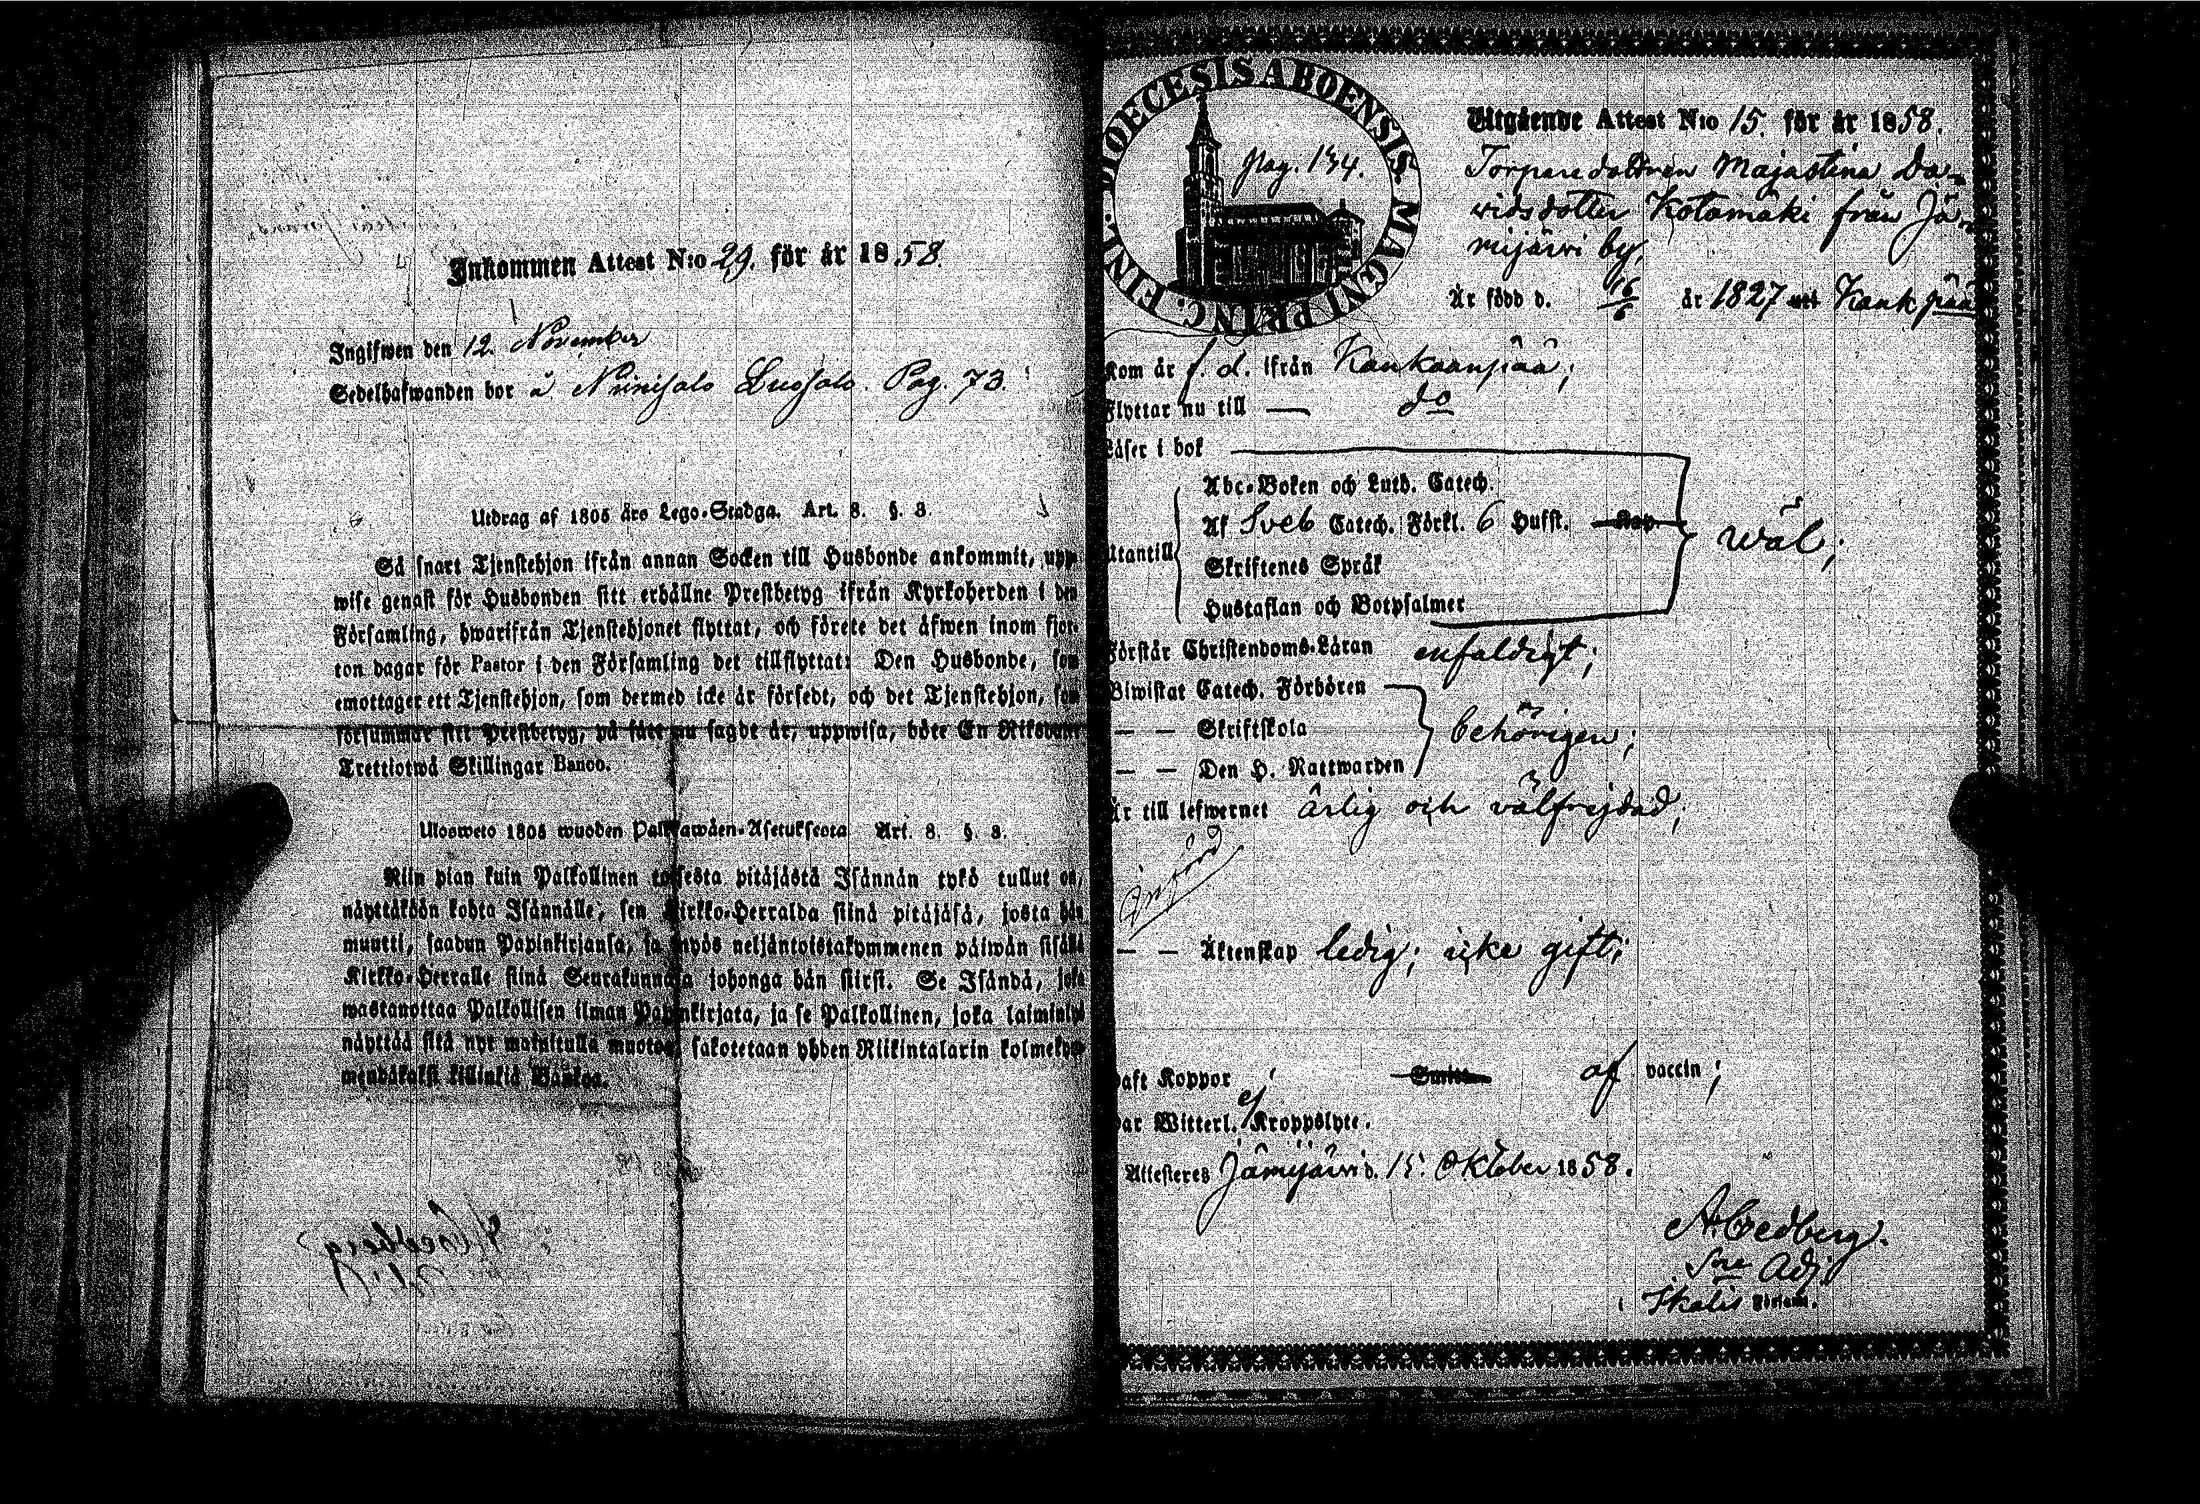 Inkommen Attest N:o 29. för år 1858.
Ingifwen den 12. November
Sedelhafwanden bor å Niinisalo Luosalo. Pag. 73.
Utdrag af 1805 års Lego-Stadga. Art. 8. §. 3.
Så snart Tjenstehjon ifrån annan Socken till Husbonde ankommit, upp-
wise genast för Husbonden sitt erhållne Prestbetyg ifrån Kyrkoherden i den
Församling, hwarifrån Tjenstehjonet flyttat, och förete det åfwen inom fjor-
ton dagar för Pastor i den Församling det tillflyttat: Den Husbonde, som
emottager ett Tjenstehjon, som dermed icke är försedt, och det Tjenstehjon, som
försummar sitt Prestbetyg, på sätt nu sagdt är, uppwisa, böte En Riksdaler
Trettiotwå Skillingar Banco.
Ulosweto 1805 wuoden Palkkawäen-Asetuksesta Art. 8. §. 3.
Niin pian kuin Palkollinen toisesta pitäjästä Isännän tykö tullut on,
näyttäköön kohta Isännälle, sen Kirkko-Herralda siinä pitäjäsä, josta hän
muutti, saadun Papinkirjansa, ja myös neljäntoistakymmenen päiwän sisällä
Kirkko-Herralle siinä Seurakunnasa johonga hän siirsi. Se Isändä, joka
wastanottaa Palkollisen ilman Papinkirjata, ja se Palkollinen, joka laiminlyö
näyttää sitä nyt mainitulla muotoa, sakotetaan yhden Riikintalarin kolmekym-
mendäkaksi killinkiä Bankoa.
DIOECESIS ABOENSIS MAGNI PRINC. FINL.
Pag. 134.
Utgående Attest N:o 15. för år 1858.
Torparedottren Majastina Da-
vidsdotter Kotamäki från Jä-
mijärvi by,
Är född d. 16/6 år 1827 uti Kankpää
Kom år f. d. ifrån Kankaanpää;
Flyttar nu till — do
Läser i bok
Abc-Boken och Luth. Catech.
Utantill Af Sveb Catech. Förkl. 6 Hufst. Kap wäl;
Skriftenes Språk
Hustaflan och Botpsalmer
Förstår Christendoms-Läran enfaldigt;
Biwistat Catech. Förhören
— — Skriftskola behörigen;
— — Den H. Nattwarden
Är till lefwernet ärlig och välfrejdad;
Införd
— — Äktenskap ledig; icke gift;
Haft Koppor Smitt af vaccin;
Har Witterl. ej Kroppslyte.
Attesteres Jämijärvi d. 15. Oktober 1858.
A Cedberg.
Sne Adj
i Ikalis Församl.